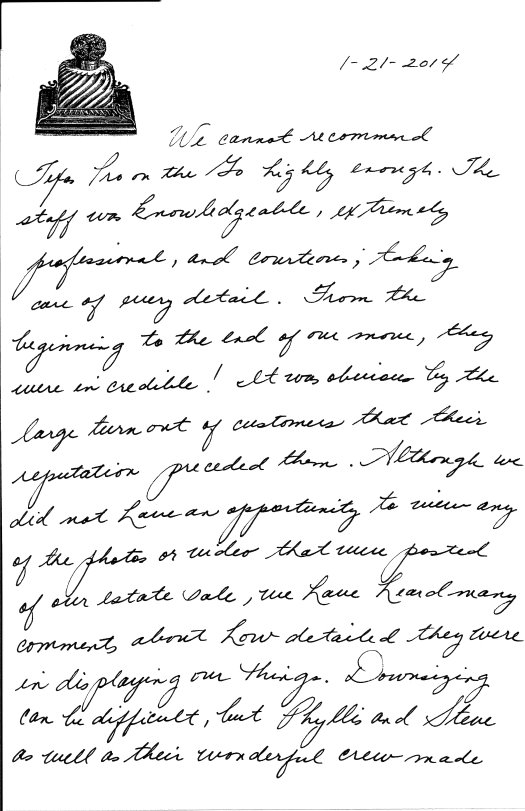 1-21-2014
We cannot recommend
Texas Pro on the Go highly enough. The
staff was knowledgeable, extremely
professional, and courteous; taking
care of every detail. From the
beginning to the end of our move, they
were incredible! It was obvious by the
large turn out of customers that their
reputation preceded them. Although we
did not have an opportunity to view any
of the photos or video that were posted
of our estate sale, we have heard many
comments about how detailed they were
in displaying our things. Downsizing
can be difficult, but Phyllis and Steve
as well as their wonderful crew made